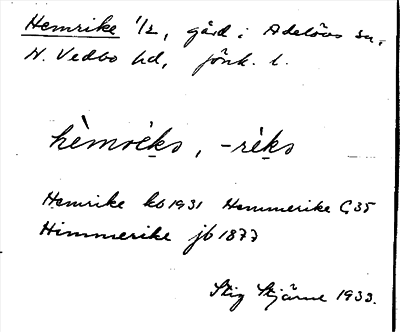 Hemrike 1/2, gård i Adelövs sn,
N. Vedbo hd, Jönk. l.
hèmrèks, -rèks
Hemrike kb 1931 Hemmerike G35
Himmerike jb 1877
Stig Stjärne 1933.